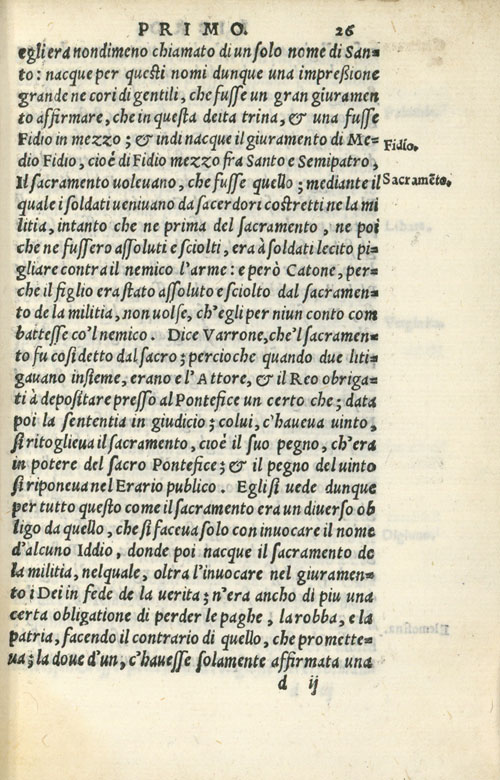 PRIMO. 26
egli era nondimeno chiamato di un solo nome di San=
to: nacque per questi nomi dunque una impreßione
grande ne cori di gentili, che fusse un gran giuramen
to affirmare, che in questa deita trina, & una fusse
Fidio in mezzo; & indi nacque il giuramento di Me=
dio Fidio, cioé di Fidio mezzo fra Santo e Semipatro,
Il sacramento voleuano, che fusse quello; mediante il
quale i soldati ueniuano da sacerdori costretti ne la mi
litia, intanto che ne prima del sacramento, ne poi
che ne fussero assoluti e sciolti, era à soldati lecito pi=
gliare contra il nemico l'arme: e però Catone, per=
che il figlio era stato assoluto e sciolto dal sacramen=
to de la militia, non uolse, ch'egli per niun conto com
battesse co'l nemico. Dice Varrone, che'l sacramen=
to fu cosi detto dal sacro; percioche quando due liti=
gauano insieme, erano e l'Attore, & il Reo obriga=
ti à depositare presso al Pontefice un certo che; data
poi la sententia in giudicio; colui, c'haueua uinto,
si ritoglieua il sacramento, cioé il suo pegno, ch'era
in potere del sacro Pontefice; & il pegno del uinto
si riponeua nel Erario publico. Egli si uede dunque
per tutto questo come il sacramento era un diuerso ob
ligo da quello, che si faceua solo con inuocare il nome
d'alcuno Iddio, donde poi nacque il sacramento de
la militia, nelquale, oltra l'inuocare nel giuramen=
to i Dei in fede de la uerita; n'era ancho di piu una
certa obligatione di perder le paghe, la robba, e la
patria, facendo il contrario di quello, che promette=
ua; la doue d'un, c'hauesse solamente affirmata una
d ij
Fidio.
Sacramẽto.